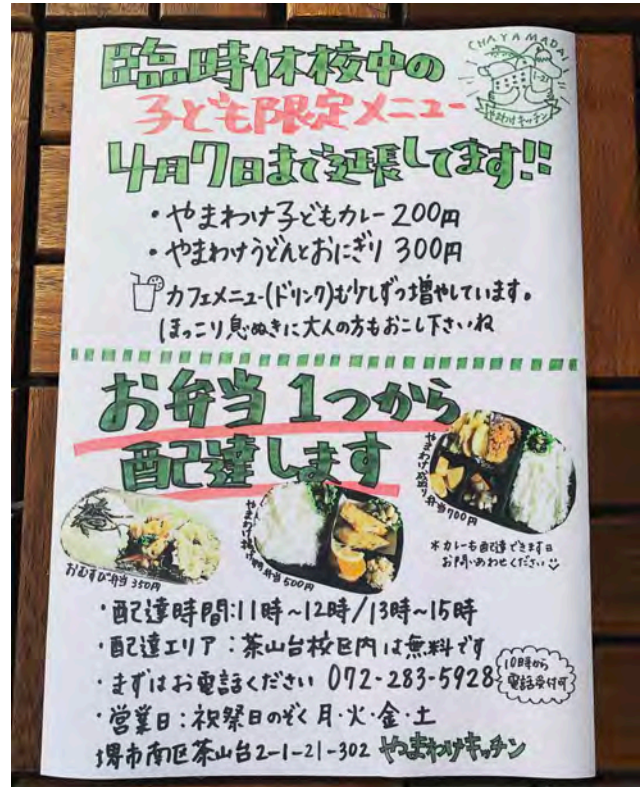 臨時休校中の
子ども限定メニュー
4月7日まで延長してます!!
CHAYAMADAI
1-21
やまわけキッチン
・やまわけ子どもカレー 200円
・やまわけうどんとおにぎり 300円
カフェメニュー(ドリンク)も少しずつ増やしています。
ほっこり息ぬきに大人の方もおこし下さいね
お弁当 1つから
配達します
おむすび弁当 350円
弁当500円
弁当700円
*カレーも配達できますヨ
お問いあわせください
・配達時間:11時~12時/13時~15時
・配達エリア:茶山台校区内は無料です
・まずはお電話ください 072-283-5928
10時から
電話受付可
・営業日:祝祭日のぞく月・火・金・土
堺市南区茶山台2-1-21-302 やまわけキッチン